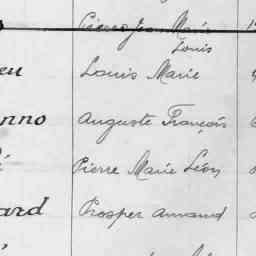 Pierre Jean Marie
Louis
eu Louis Marie
nno Auguste François
Pierre Marie Léon
ard Prosper Armand